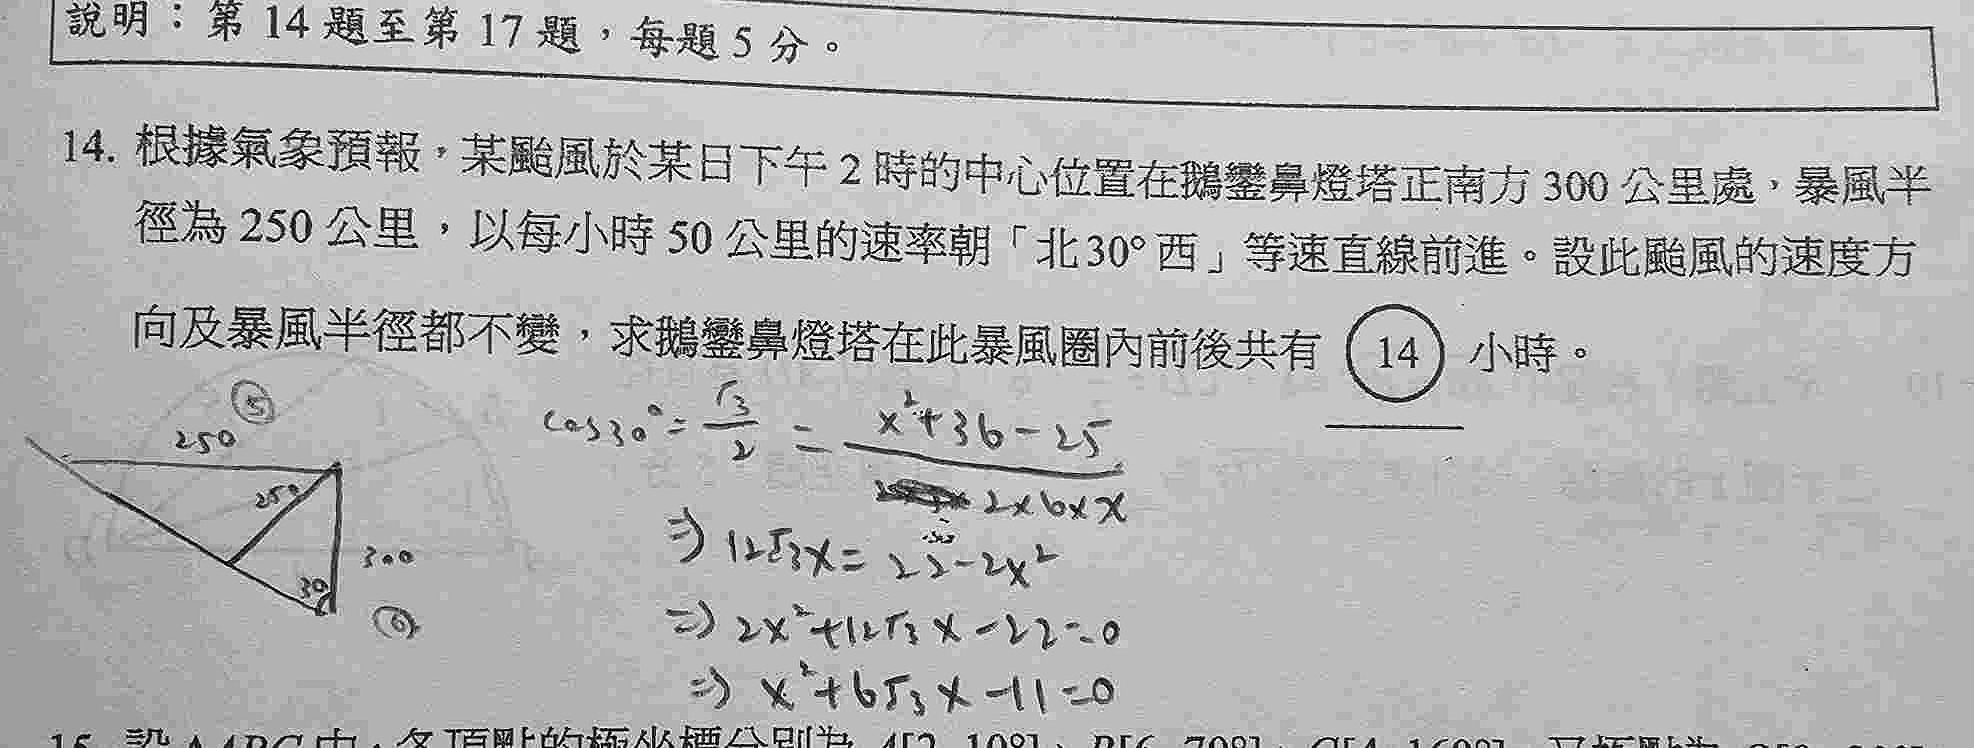 說明：第 14 題至第 17 題，每題 5 分。
14. 根據氣象預報，某颱風於某日下午 2 時的中心位置在鵝鑾鼻燈塔正南方 300 公里處，暴風半
徑為 250 公里，以每小時 50 公里的速率朝「北30°西」等速直線前進。設此颱風的速度方
向及暴風半徑都不變，求鵝鑾鼻燈塔在此暴風圈內前後共有 14 小時。
5
250
250
300
30
6
cos30° = √3/2 = x²+36-25 / 2×6×x
⇒ 12√3x = 22-2x²
⇒ 2x²+12√3x-22=0
⇒ x²+6√3x-11=0